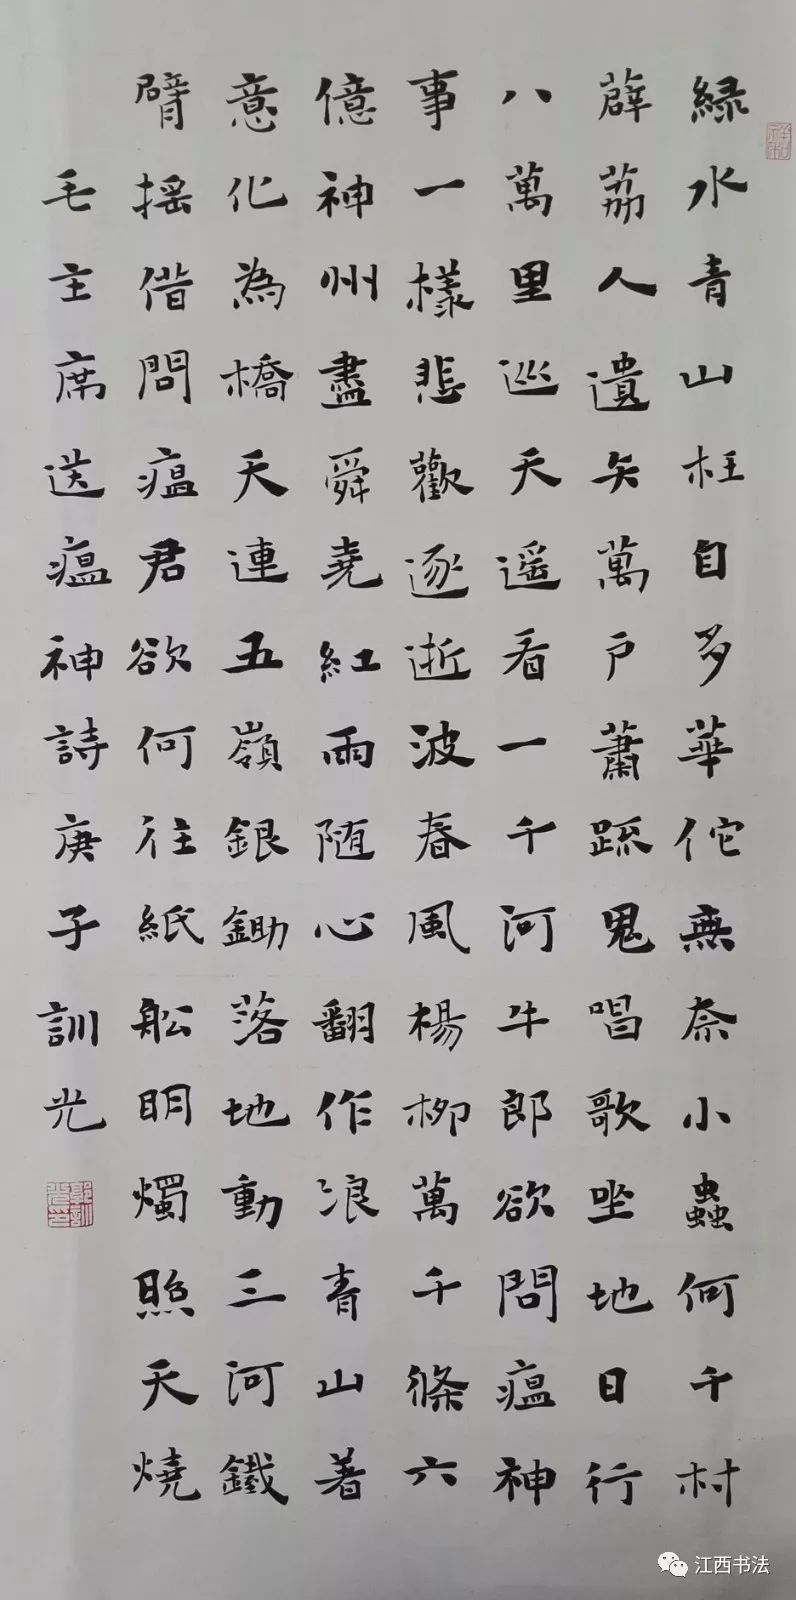 緑水青山枉自多華佗無奈小蟲何千村
薜荔人遺矢萬户蕭踈鬼唱歌坐地日行
八萬里巡天遥看一千河牛郎欲問瘟神
事一樣悲歡逐逝波春風楊柳萬千條六
億神州盡舜堯紅雨随心翻作浪青山著
意化為橋天連五嶺銀鋤落地動三河鐵
臂摇借問瘟君欲何往紙船明燭照天燒
毛主席送瘟神詩庚子訓光
江西书法